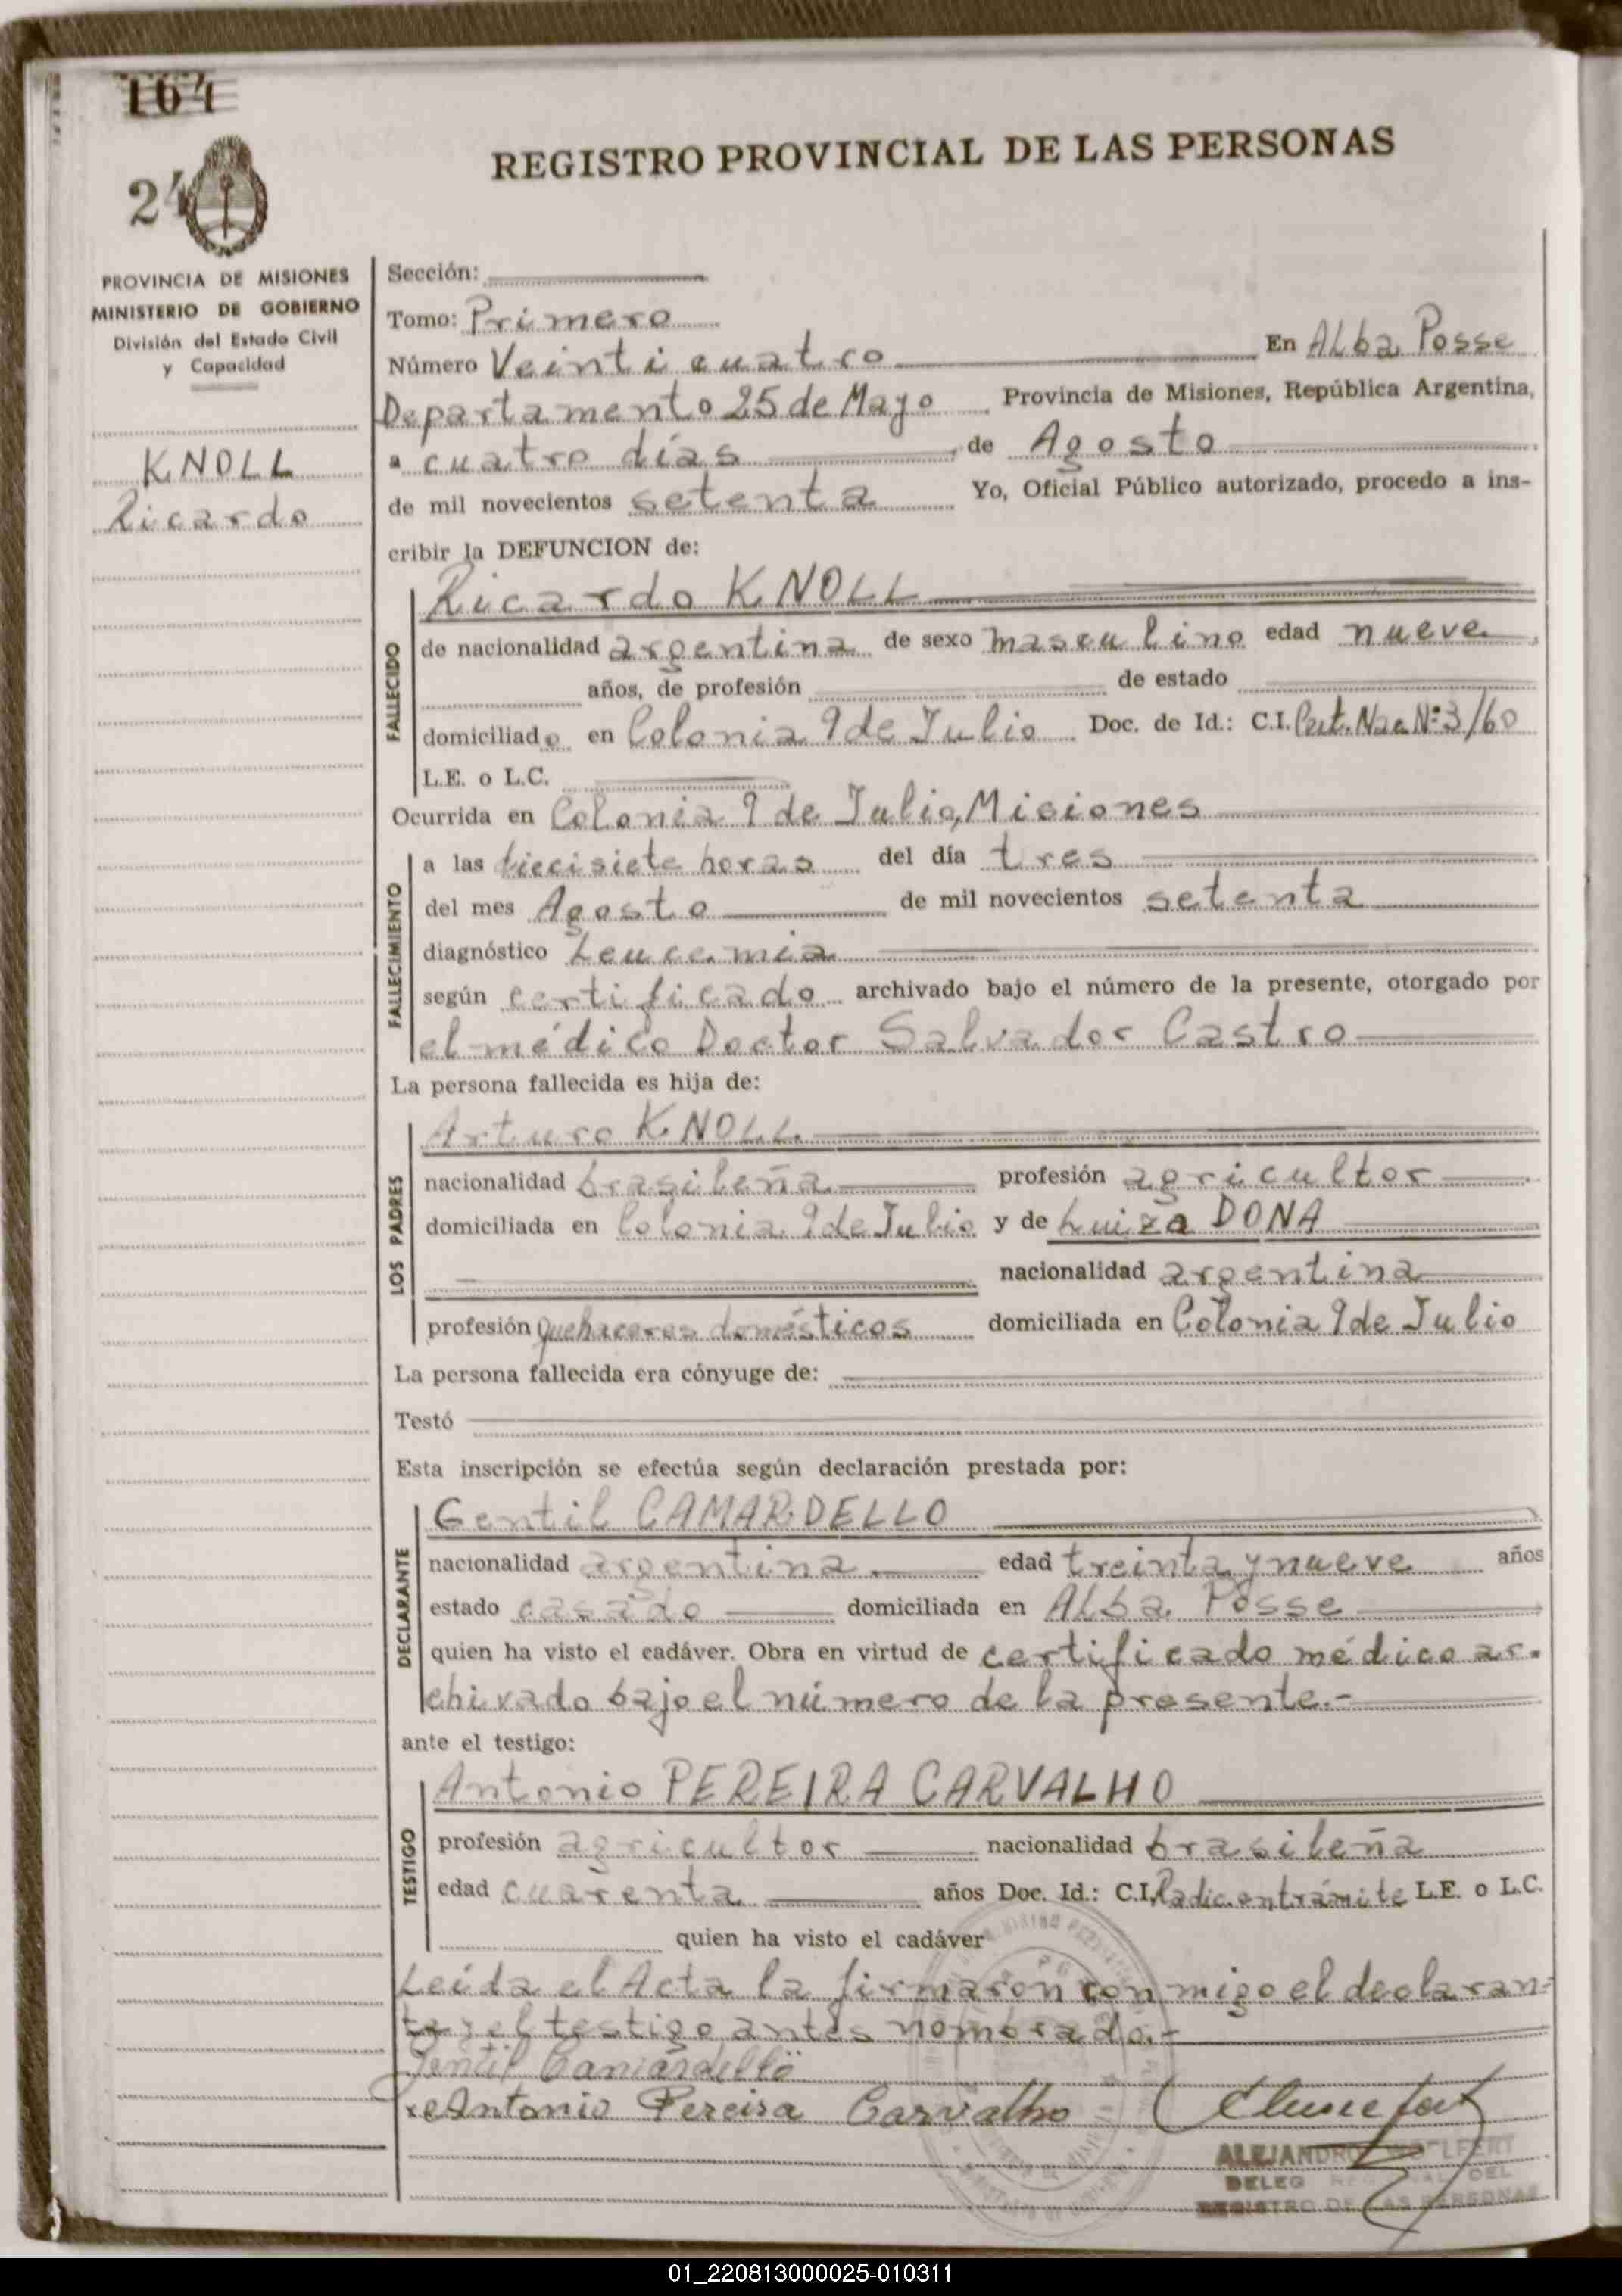 164
24
REGISTRO PROVINCIAL DE LAS PERSONAS
PROVINCIA DE MISIONES
MINISTERIO DE GOBIERNO
División del Estado Civil
y Capacidad
KNOLL
Ricardo
Sección:
Tomo: Primero
Número Veinticuatro En Alba Posse
Departamento 25 de Mayo Provincia de Misiones, República Argentina,
a cuatro días de Agosto
de mil novecientos setenta Yo, Oficial Público autorizado, procedo a ins-
cribir la DEFUNCION de:
FALLECIDO
Ricardo KNOLL
de nacionalidad argentina de sexo masculino edad nueve
años, de profesión de estado
domiciliado en Colonia 9 de Julio Doc. de Id.: C.I. Cert. Nac. Nº 3/60
L.E. o L.C.
Ocurrida en Colonia 9 de Julio, Misiones
FALLECIMIENTO
a las diecisiete horas del día tres
del mes Agosto de mil novecientos setenta
diagnóstico Leucemia
según certificado archivado bajo el número de la presente, otorgado por
el médico Doctor Salvador Castro
La persona fallecida es hija de:
LOS PADRES
Arturo KNOLL
nacionalidad brasileña profesión agricultor
domiciliada en Colonia 9 de Julio y de Luiza DONA
nacionalidad argentina
profesión Quehaceres domésticos domiciliada en Colonia 9 de Julio
La persona fallecida era cónyuge de:
Testó
Esta inscripción se efectúa según declaración prestada por:
DECLARANTE
Gentil CAMARDELLO
nacionalidad argentina edad treinta y nueve años
estado casado domiciliada en Alba Posse
quien ha visto el cadáver. Obra en virtud de certificado médico ar-
chivado bajo el número de la presente.-
ante el testigo:
TESTIGO
Antonio PEREIRA CARVALHO
profesión agricultor nacionalidad brasileña
edad cuarenta años Doc. Id.: C.I. Radic. en trámite L.E. o L.C.
quien ha visto el cadáver
Leída el Acta la firmaron conmigo el declaran-
te y el testigo antes nombrado.-
Gentil Camardello
Antonio Pereira Carvalho
ALEJANDRO
DELEG DEL
REGISTRO DE LAS PERSONAS
01_220813000025-010311